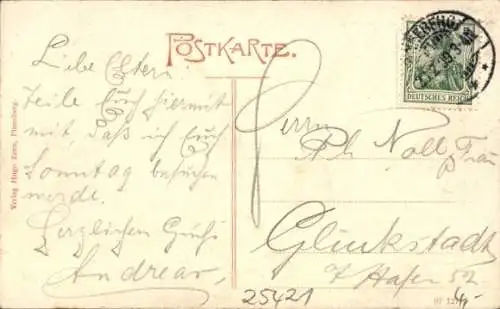 POSTKARTE.
Liebe Eltern!
Teile Euch hiermit
mit, daß ich Euch
Sonntag besuchen
werde.
Herzlichen Gruß
Andreas.
Herrn
Ph. Noll Frau
Glückstadt
Hafen 52
DEUTSCHES REICH
Verlag Hugo Zorn, Flensburg.
25421